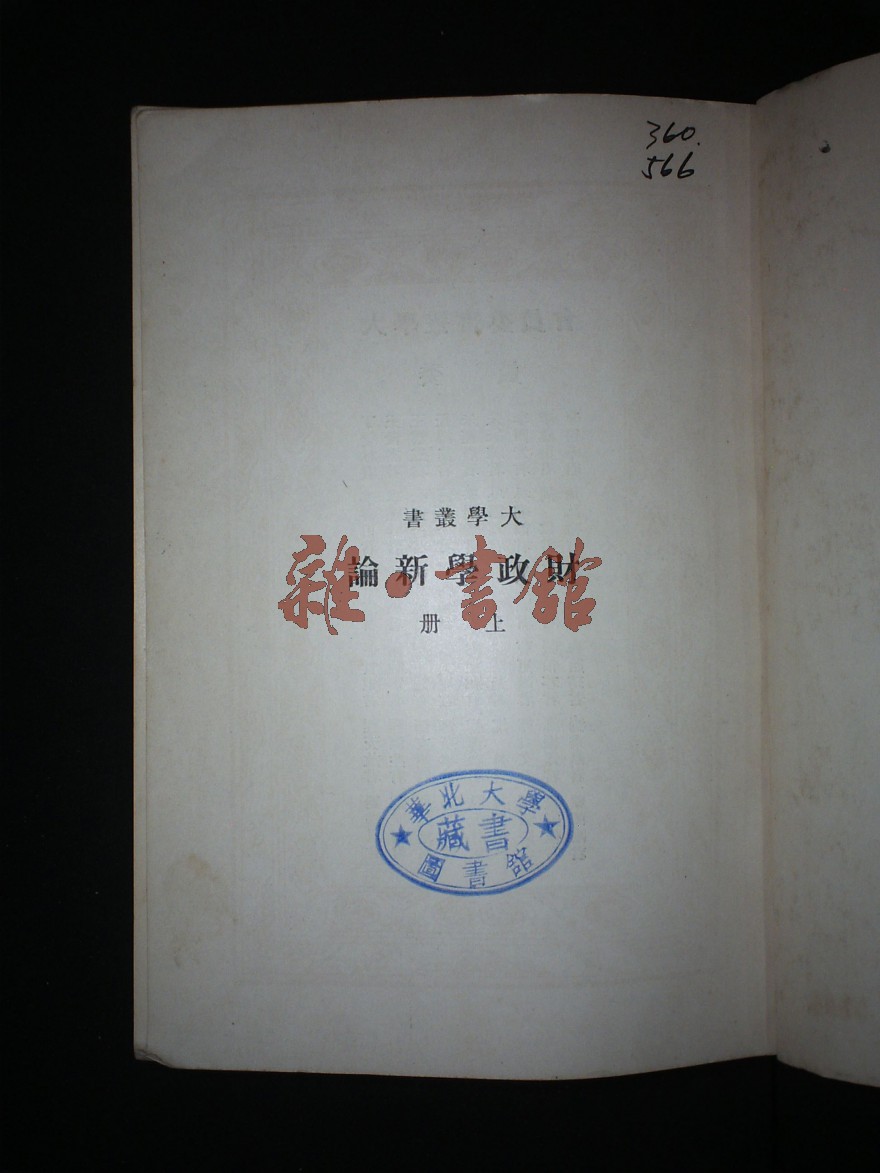 360.
566
大學叢書
財政學新論
上册
雜·書館
華北大學
藏書
圖書館